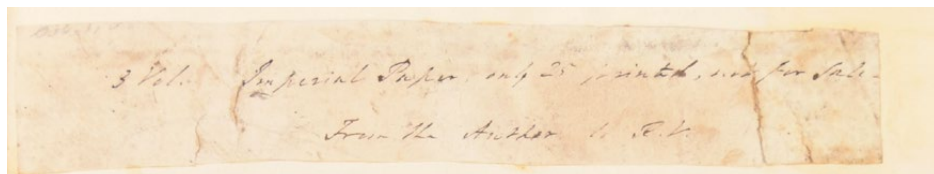 3 Vol. Imperial Paper, only 25 printed, not for Sale -
From the Author to R.V.